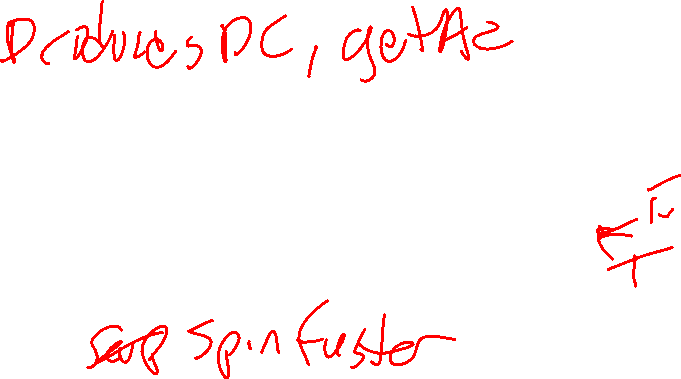 Produces DC, get Ac
Spin Fuster